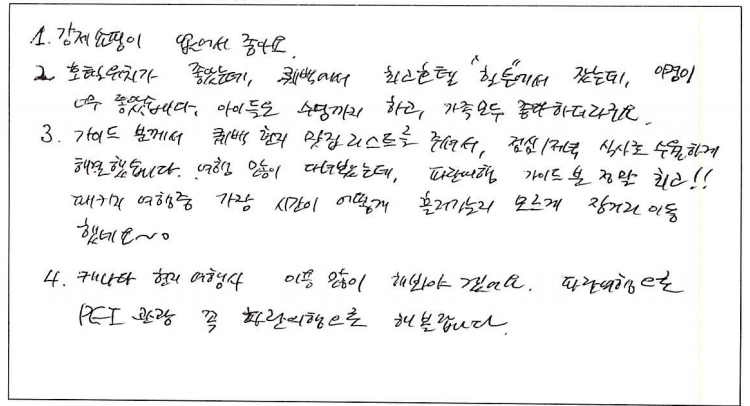 1. 강제쇼핑이 없어서 좋아요.
2. 호텔위치가 좋았는데, 퀘백에서 최고호텔 "힐튼"에서 잤는데, 야경이
너무 좋았습니다. 아이들은 수영까지 하고, 가족모두 좋아하더라구요.
3. 가이드 분께서 퀘백 현지 맛집리스트를 주셔서, 점심/저녁 식사도 수월하게
해결했습니다. 여행 많이 다녀봤는데, 파란여행 가이드분 정말 최고!!
패키지 여행중 가장 시간이 어떻게 흘러가는지 모르게 장거리 이동
했네요~.
4. 캐나다 현지 여행사 이용 많이 해봐야 겠어요. 파란여행으로
PEI 관광 꼭 파란여행으로 해볼랍니다.